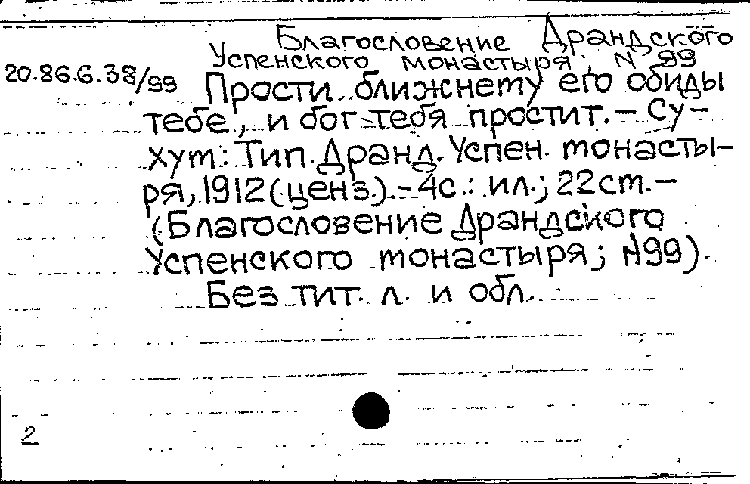 Благословение Драндского
Успенского монастыря; N 99
20.86.6.38/99 Прости ближнему его обиды
тебе, и бог тебя простит. – Су-
хум: Тип. Дранд. Успен. монасты-
ря, 1912 (ценз.). – 4с.: ил.; 22см. –
(Благословение Драндского
Успенского монастыря; N99).
Без тит. л. и обл.
2